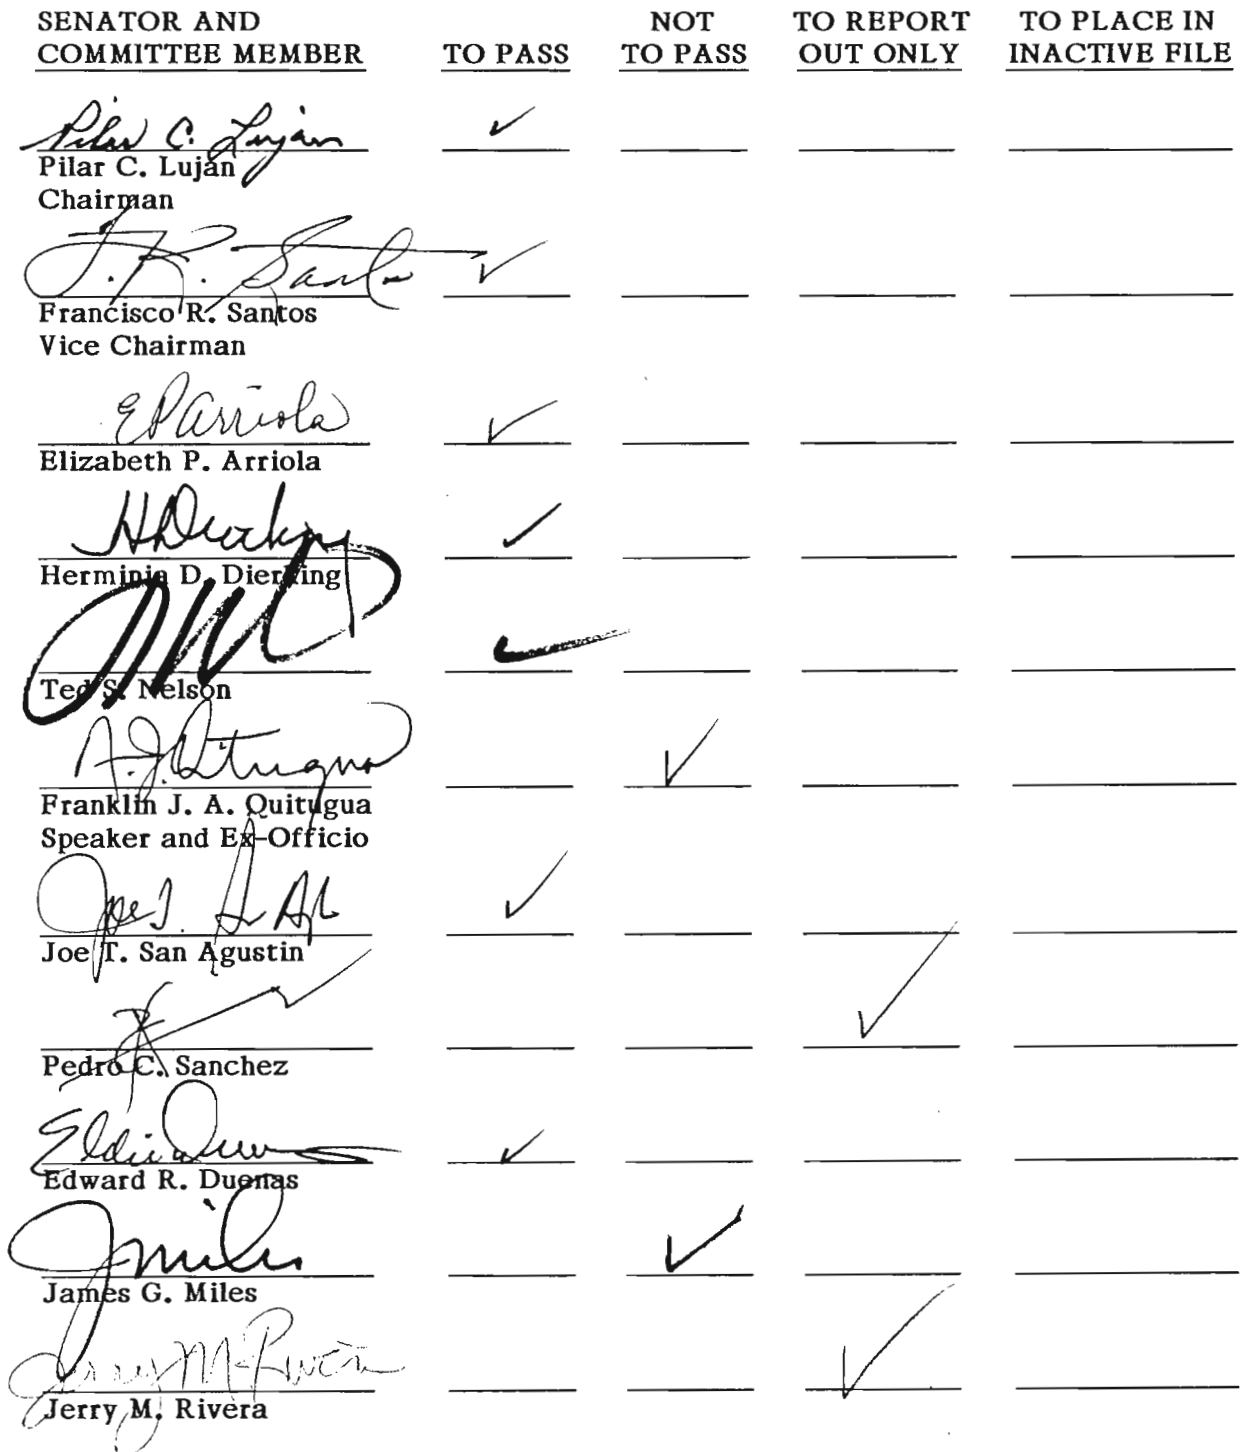 SENATOR AND NOT TO REPORT TO PLACE IN
COMMITTEE MEMBER TO PASS TO PASS OUT ONLY INACTIVE FILE
Pilar C. Lujan ✓
Pilar C. Luján
Chairman
F. R. Santos ✓
Francisco R. Santos
Vice Chairman
EPArriola ✓
Elizabeth P. Arriola
HDierking ✓
Herminia D. Dierking
✓
Ted S. Nelson
F. J. Quitugua ✓
Franklin J. A. Quitugua
Speaker and Ex-Officio
Joe T. S Ag ✓
Joe T. San Agustin
✓
Pedro C. Sanchez
Eddie Duenas ✓
Edward R. Duenas
J Miles ✓
James G. Miles
Jerry M Rivera ✓
Jerry M. Rivera